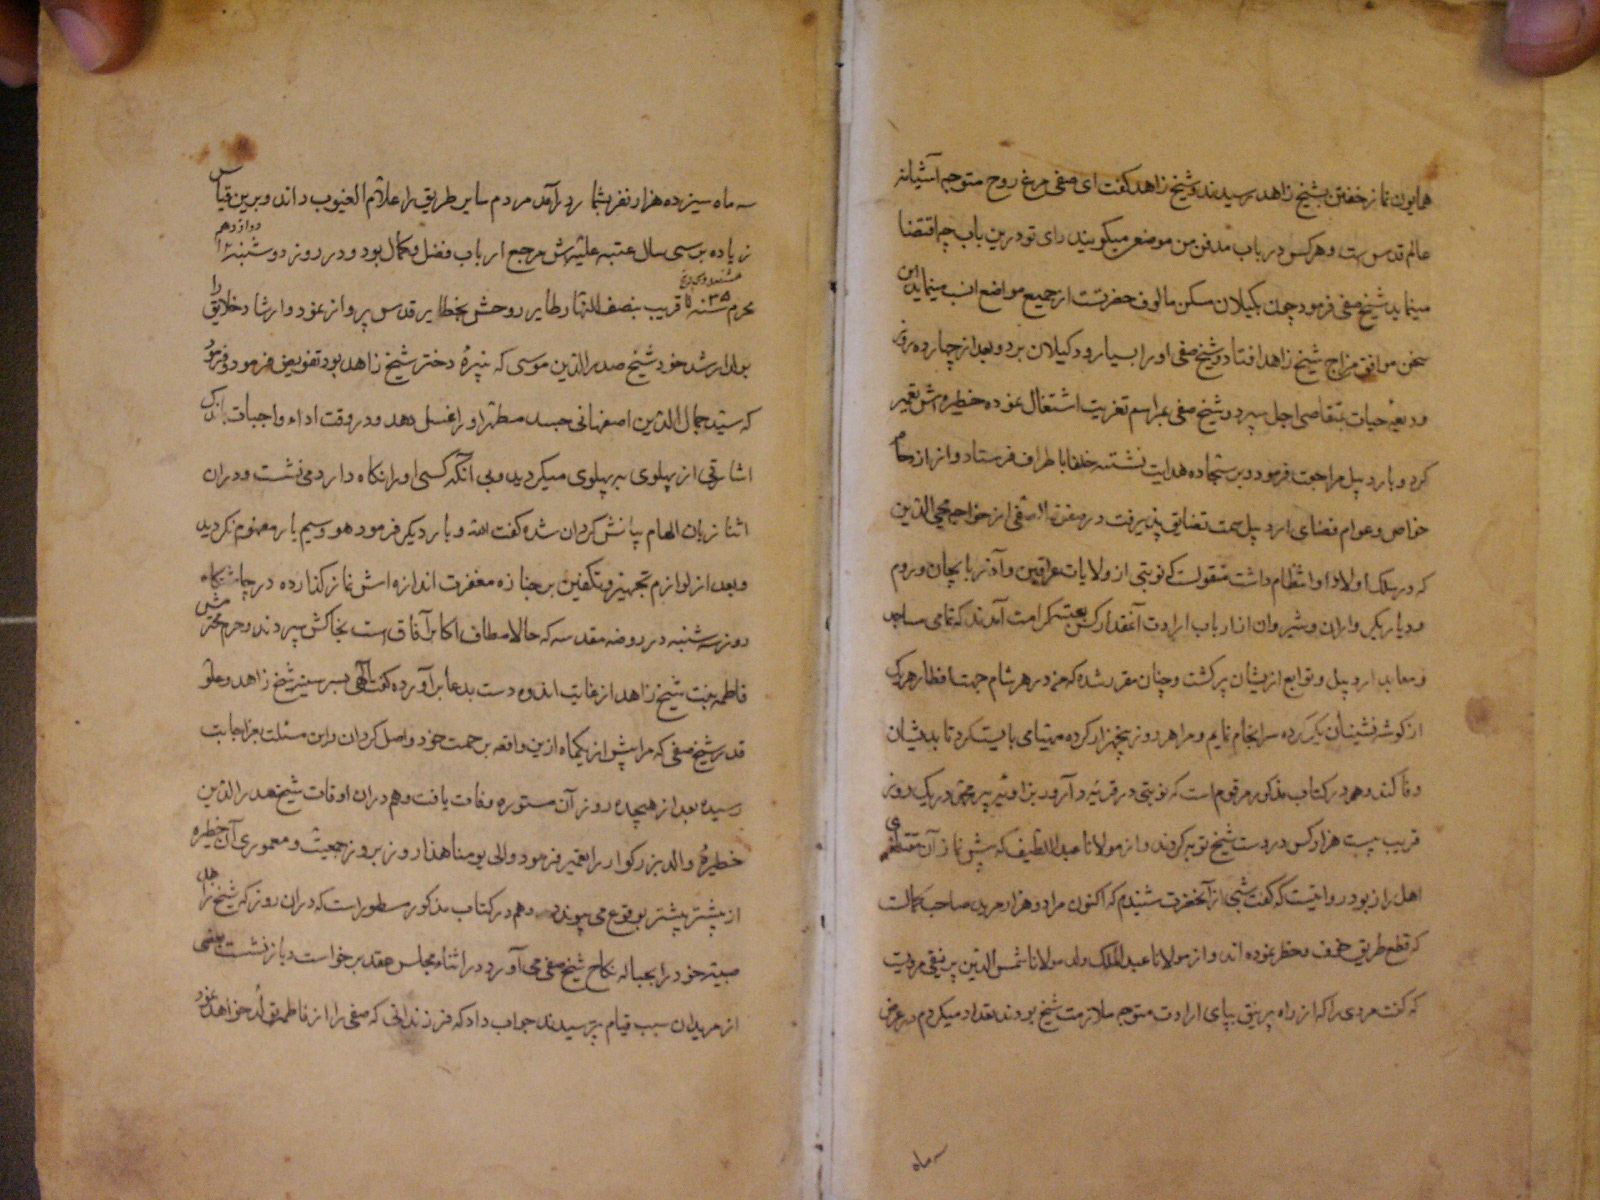 همایون نماز خفتن بشیخ زاهد رسیدند و شیخ زاهد گفت ای صفی مرغ روح متوجه آشیانه
عالم قدس است و هر کس در باب مدفن من موضعی میگویند رای تو درین باب چه اقتضا
مینماید شیخ صفی فرمود چون گیلان مسکن مالوف حضرتست از جمیع مواضع انسب مینماید این
سخن موافق مزاج شیخ زاهد افتاد و شیخ صفی او را بسیاورود گیلان برد و بعد از چهارده روز
ودیعهٔ حیات بمتقاضی اجل سپرد و شیخ صفی بمراسم تعزیت اشتغال نموده حظیره اش تعمیر
کرد و باردبیل مراجعت فرمود و بر سجاده هدایت نشسته خلفا باطراف فرستاد و از ازدحام
خواص و عوام فضای اردبیل سمت تضایق پذیرفت در صفوة الصفی از خواجه محیی الدین
که در سلک اولاد او انتظام داشت منقولست که نوبتی از ولایات عراقین و آذربایجان و روم
و دیاربکر و اران و شیروان از ارباب ارادت آنقدر کس بعتبه کرامت آمدند که تمامی مساجد
و معابد اردبیل و توابع ازیشان پر گشت و چنان مقرر شده که من در هر شام جهت افطار هر یک
از گوشه نشینان یک گرده سرانجام نمایم و مرا هر روز پنجهزار گرده مهیا می بایست کرد تا بدیشان
وفا کند و هم در کتاب مذکور مرقوم است که نوبتی در قریه در
قریب بیست هزار کس در دست شیخ توبه کردند و از مولانا عبد اللطیف که پیش نماز آن مقتدای
اهل راز بود روایتیست که گفت شبی از آنحضرت شنیدم که اکنون مرا دو هزار مرید صاحب کمالست
که قطع طریق خوف و خطر نموده اند و از مولانا عبد الملک ولد مولانا شمس الدین برنیقی مرویست
که گفت مردمی را که از راه برنیق بپای ارادت متوجه ملازمت شیخ بودند تعداد میکردم در عرض
سه ماه
سه ماه سیزده هزار نفر بشمار درآمد مردم سایر طریق را علام الغیوب داند و برین قیاس
زیاده بر سی سال عتبه علیه اش مرجع ارباب فضل و کمال بود و در روز دوشنبه دوازدهم
محرم سنه ۷۳۵ هفتصد و سی و پنج قریب بنصف النهار طایر روحش بحظایر قدس پرواز نمود و ارشاد خلایق را
بولد ارشد خود شیخ صدر الدین موسی که نبیرهٔ دختر شیخ زاهد بود تفویض فرمود و فرمود
که سید جمال الدین اصفهانی جسد مطهر او را غسل دهد و در وقت اداء واجبات باندک
اشارتی از پهلوی بر پهلوی میگردید و بی آنکه کسی او را نگاه دارد می نشست و در ان
اثنا زبان الهام بیانش گردان شده گفت الله و بار دیگر فرمود هو و سیم بار مفهوم نگردید
و بعد از لوازم تجهیز و تکفین بر جنازه مغفرت اندازه اش نماز گذارده در چاشتگاه
روز سه شنبه در روضه مقدسه که حالا مطاف اکابر آفاق است بخاکش سپردند و حرم محترمش
فاطمه بنت شیخ زاهد از غایت اندوه دست بدعا برآورده گفت الهی بسر سینه شیخ زاهد و علو
قدر شیخ صفی که مرا پیش از یکماه ازین واقعه برحمت خود واصل گردان و این مسئلت بعز اجابت
رسیده بعد از هیجده روز آن مستوره وفات یافت و هم در ان اوقات شیخ صدر الدین
حظیرهٔ والد بزرگوار را تعمیر فرمود و الی یومنا هذا روز بروز جمعیت و معموری آن حظیره
از پیشتر بیشتر بوقوع می پیوندد و هم در کتاب مذکور مسطور است که در ان روز که شیخ زاهد
صبیه خود را بحباله نکاح شیخ صفی می آورد در اثناء مجلس عقد برخواست و باز نشست بعضی
از مریدان سبب قیام پرسیدند جواب داد که فرزندانی که صفی را از فاطمه تولد خواهد نمود